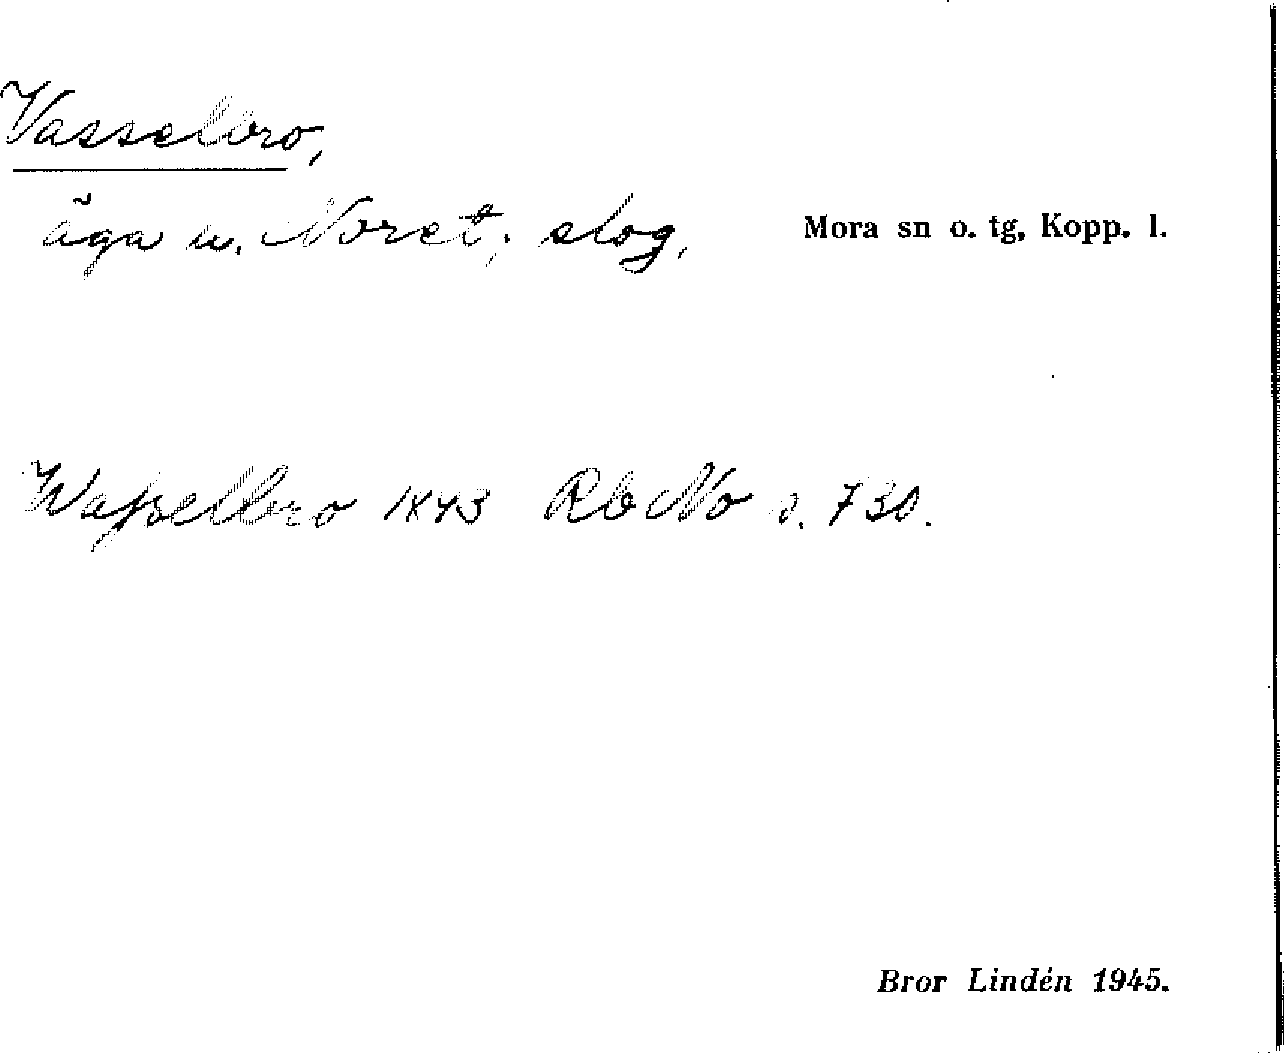 Vasselbro,
äga u. Noret; slog.
Mora sn o. tg, Kopp. l.
Wasselbro 1843 Rb No s. 730.
Bror Lindén 1945.